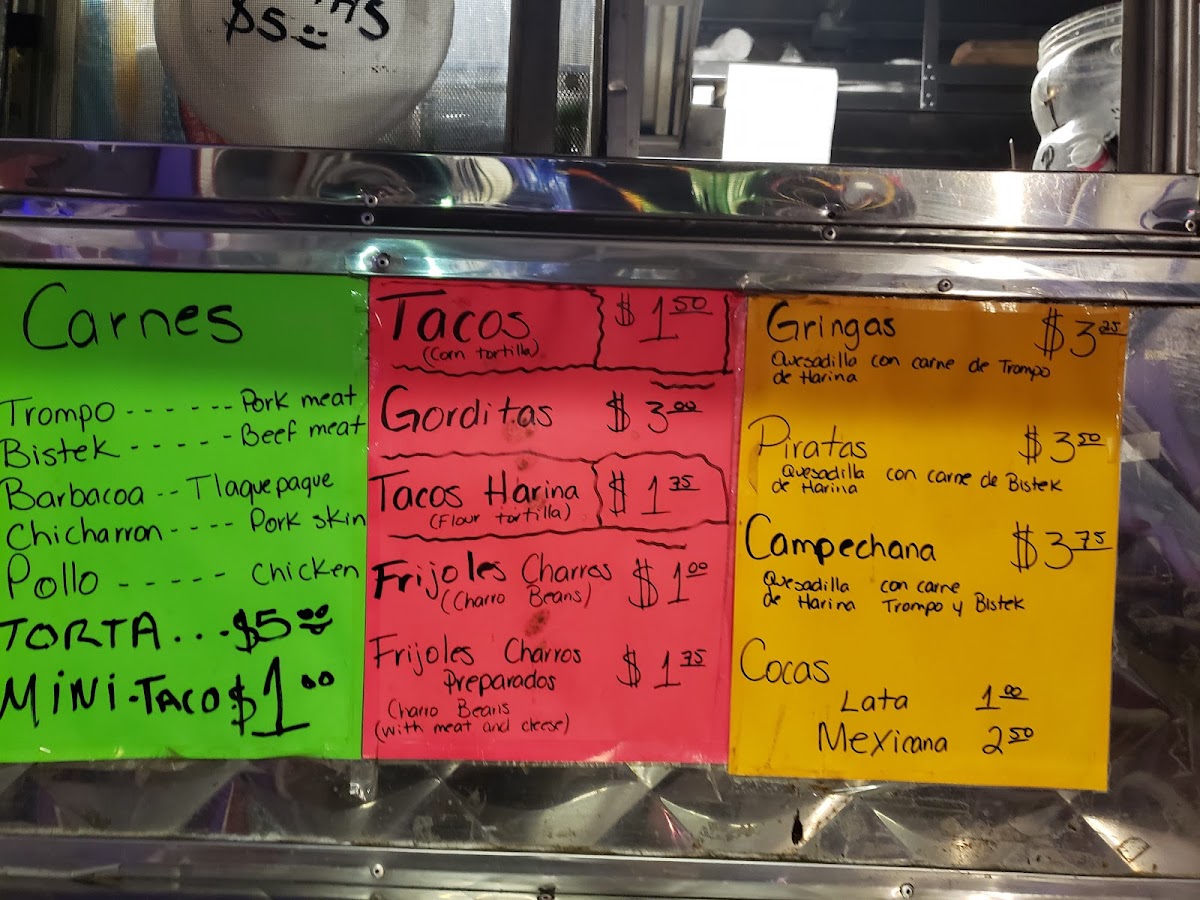 $5
Carnes
Trompo ------ Pork meat
Bistek ----- Beef meat
Barbacoa -- Tlaquepaque
Chicharron ---- Pork skin
Pollo ----- chicken
TORTA...$5
MiNi-TACO $1.00
Tacos $1.50
(Corn tortilla)
Gorditas $3.00
Tacos Harina $1.75
(Flour tortilla)
Frijoles Charros $1.00
(Charro Beans)
Frijoles Charros
Preparados $1.75
Charro Beans
(with meat and cheese)
Gringas $3.25
Quesadilla con carne de Trompo
de Harina
Piratas $3.50
Quesadilla con carne de Bistek
de Harina
Campechana $3.75
Quesadilla con carne
de Harina Trompo y Bistek
Cocas
Lata 1.00
Mexicana 2.50